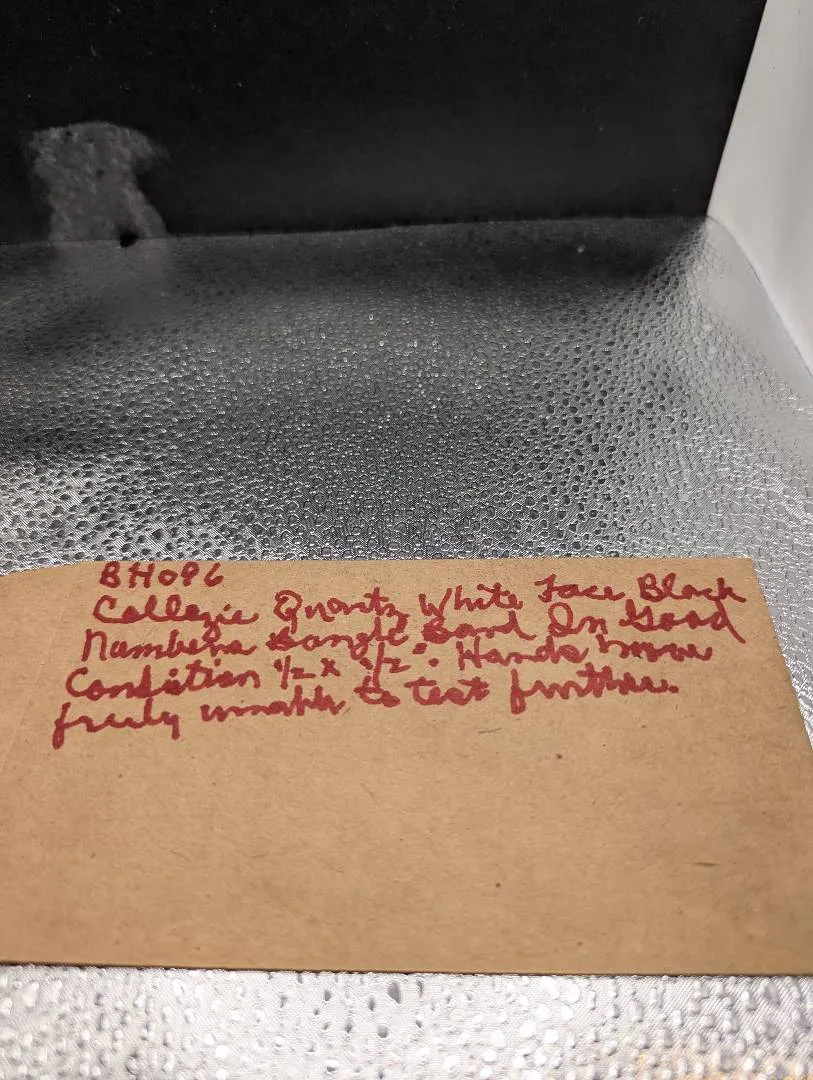 BH096
Collezio Quartz White Face Black
Numbers Bangle Band In Good
Condition 1/2 x 1/2". Hands move
freely unable to test further.